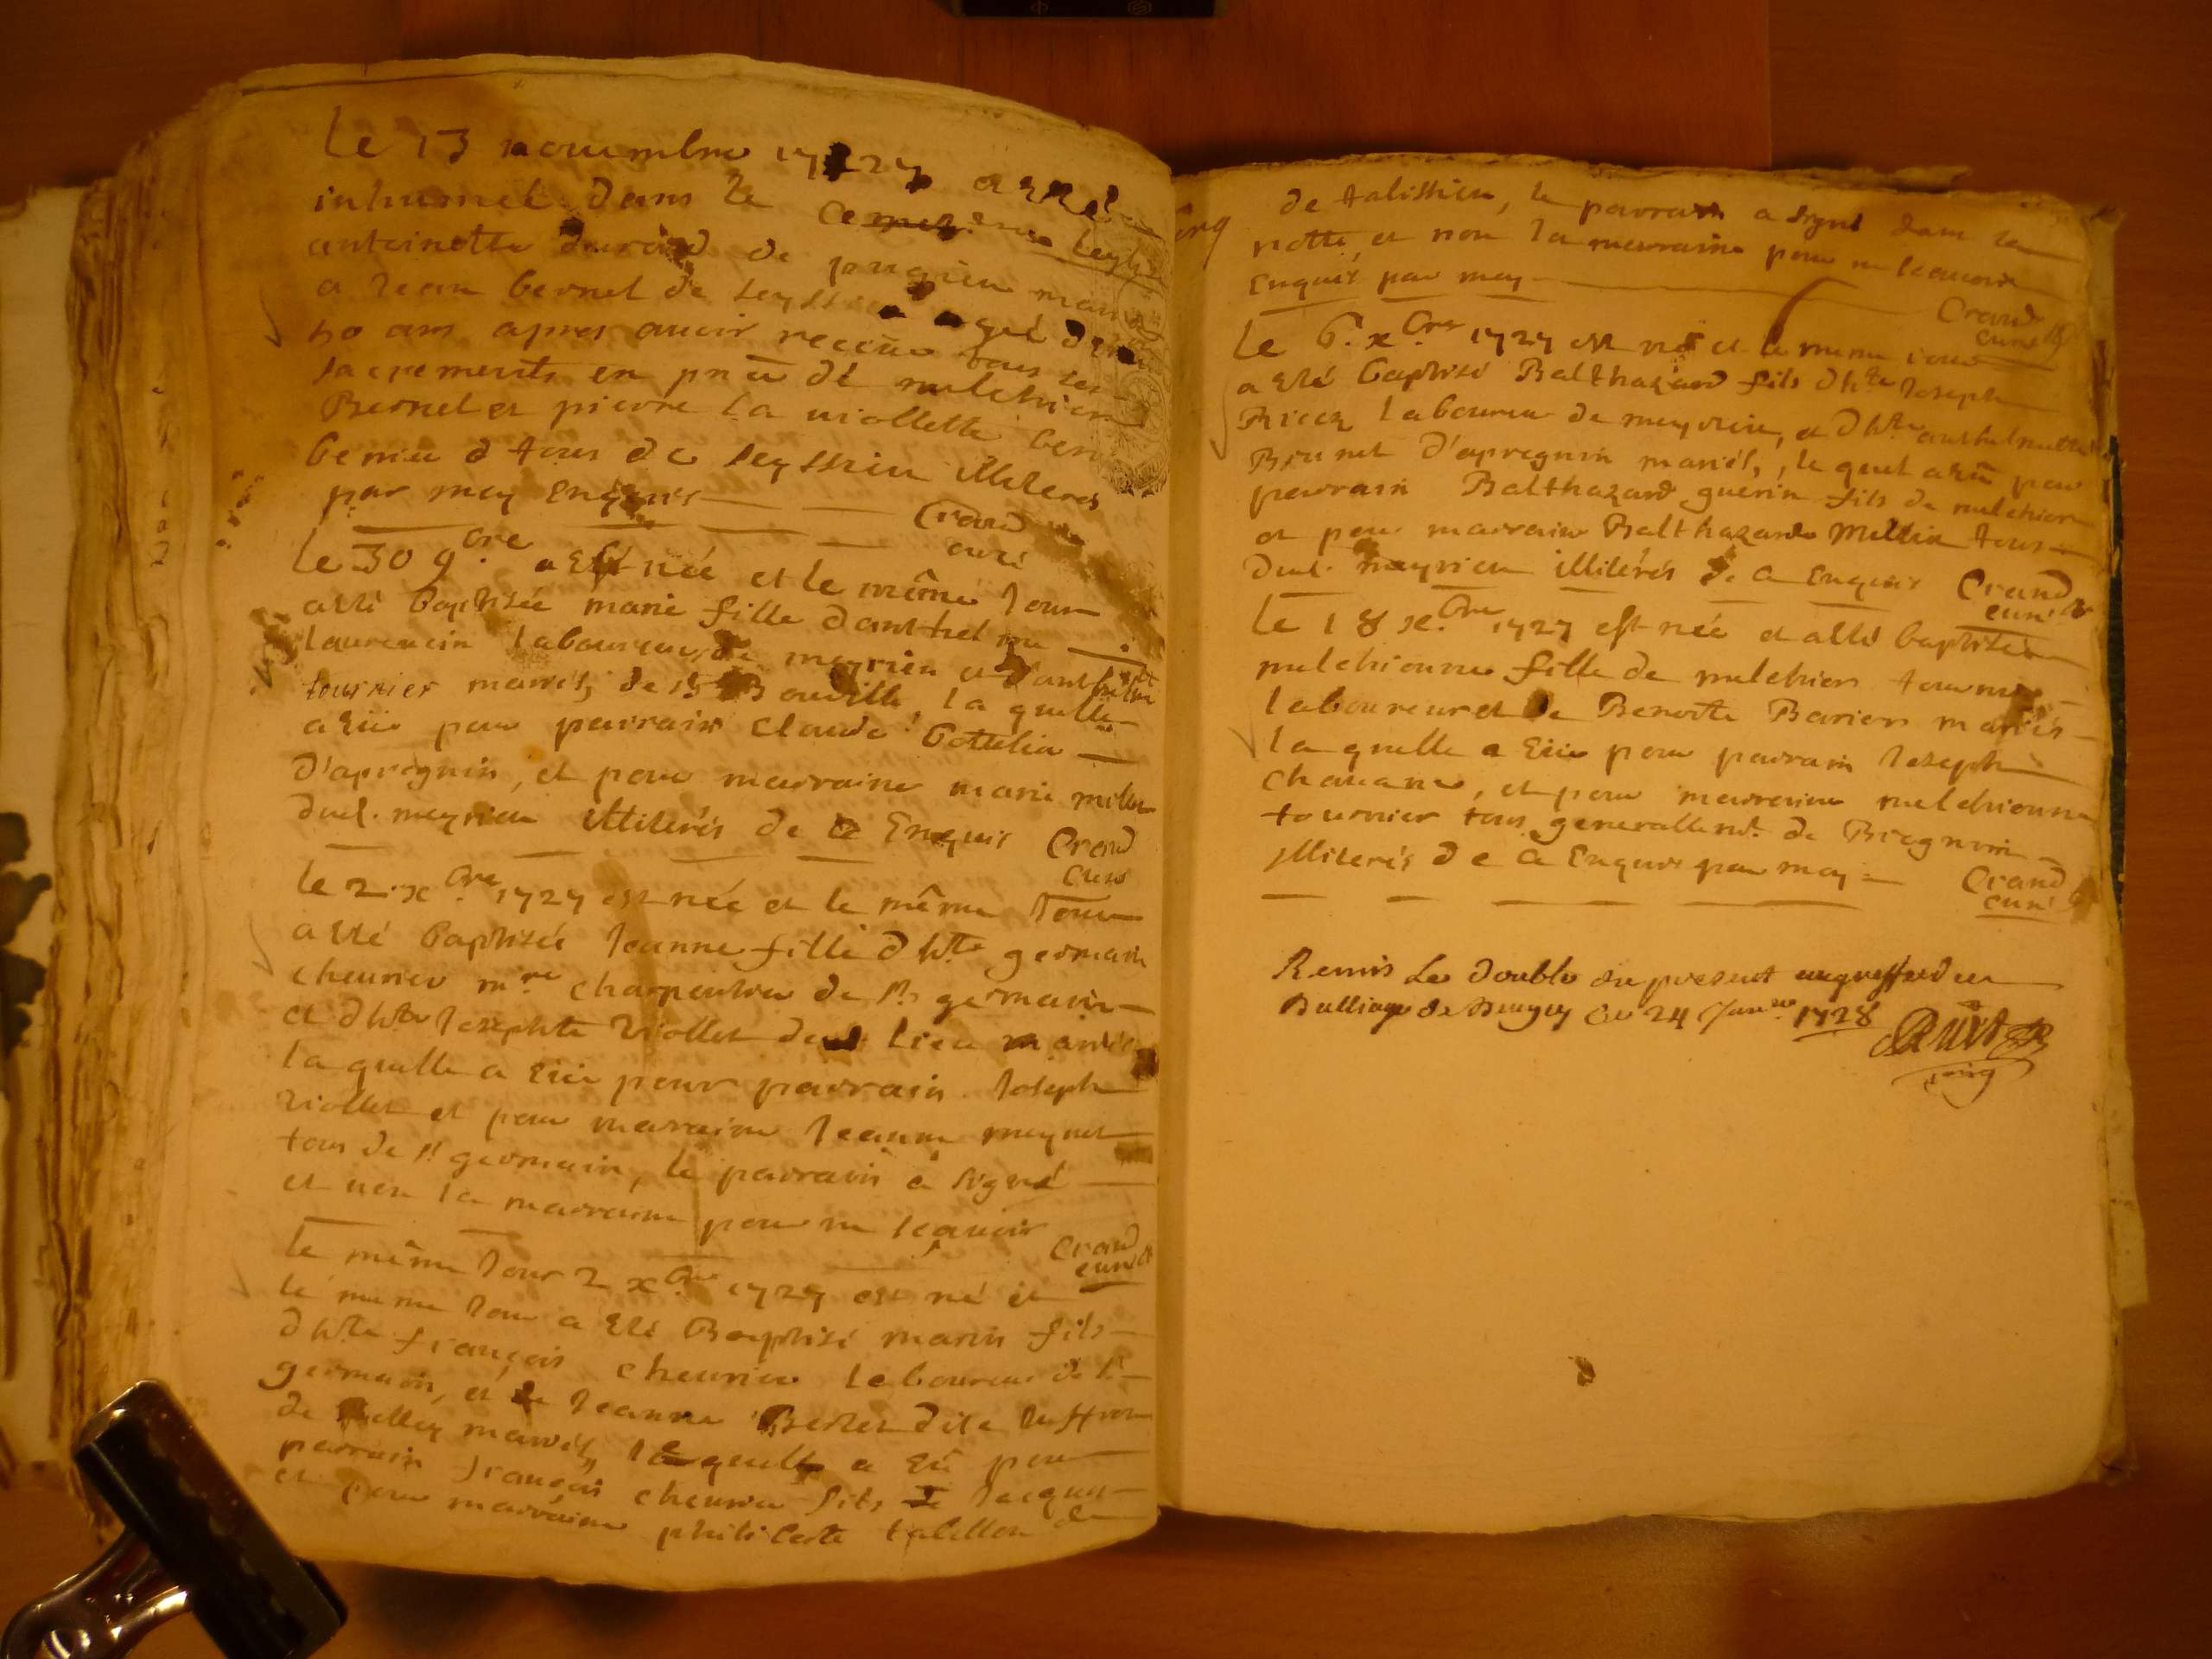 Le 13 novembre 1727 a esté
inhumée dans le
antoinette durand de pugieu mariée
a Jean bernet de seyssieu agée de
50 ans apres avoir receu tous ses
sacrements en pñce de melchior
Bernet et pierre la viollette
de seyssieu illiterés
par moy Enquis Crand
curé
le 30 9bre a Esté née et le même Jour
a esté baptisée marie fille d'anthelme
laurencin laboureur de meyrieu et d'anthelma
tournier mariés de la quelle
a Eüe pour parrain claude bottelin
d'apregnin, et pour marraine marie millin
dud. meyrieu illiterés de ce Enquis Crand
curé
le 2. xbre 1727 est née et le même Jour
a esté baptisée Jeanne fille d'hte germain
chevrier mre charpentier de st germain
et d'hte Josephte viollet dud lieu mariés
la quelle a Eüe pour parrain Joseph
viollet et pour marraine Jeanne meynet
tous de st germain, le parrain a signé
et non la marraine pour ne sçavoir
Crand
curé
le même Jour 2 xbre 1727 est né et
le meme Jour a esté Baptisé marin fils
d'hte françois chevrier laboureur de st
germain, et de Jeanne dite
de mariés, le quelle a Eü pour
parrain françois chevrier fils de Jacques
et pour marraine philiberte talillon de
de talissieu, le parrain a signé dans sa
notte, et non la marraine pour ne sçavoir
Enquis par moy
Crand
curé
Le 6. xbre 1727 est né et le meme iour
a esté baptisé Balthazard fils d'hte Joseph
laboureur de meyrieu, et d'hte anthelmette
Brunet d'apregnin mariés, le quel a Eü pour
parrain Balthazard guerin fils de melchior
et pour marraine Balthazarde Millin tous
dud. meyrieu illiterés de ce Enquis Crand
curé
le 18 xbre 1727 est née et a esté baptisée
melchionne fille de melchior tournier
laboureur et de Benoite Bariery mariés
la quelle a Eüe pour parrain Joseph
chavane, et pour marraine melchionne
tournier tous generallemt. de Bregnin
illiterés de ce Enquis par moy Crand
curé
Remis Le double du present au greffe du
Balliage de Beugey ce 24 Janer 1728